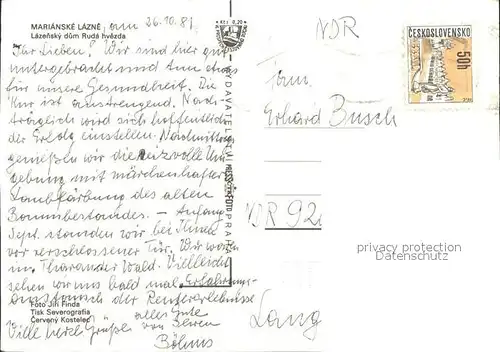 MARIÁNSKÉ LÁZNĚ, am 26.10.81
Lázeňský dům Rudá hvězda
Ihr Lieben! Wir sind hier gut
untergebracht und tun etwas
für unsere Gesundheit. Die
Kur ist anstrengend. Nach-
träglich wird sich hoffentlich
der Erfolg einstellen. Nachmittags
genießen wir die reizvolle Um-
gebung mit märchenhafter
Laubfärbung des alten
Baumbestandes. – Anfang
Sept. standen wir bei Ihnen
vor verschlossener Tür. Wir waren
im Tharandter Wald. Vielleicht
sehen wir uns bald mal. Erfahrungs-
austausch der Rentnererlebnisse
alles Gute
Viele herzl. Grüße von Ihren
Böhms
Foto Jiří Finda
Tisk Severografia
Červený Kostelec
Kčs 0,20
VYDAVATELSTVÍ
PRAHA
NDR
ČESKOSLOVENSKO
50h
Fam.
Erhard Busch
DDR 92
Lang
privacy protection
Datenschutz